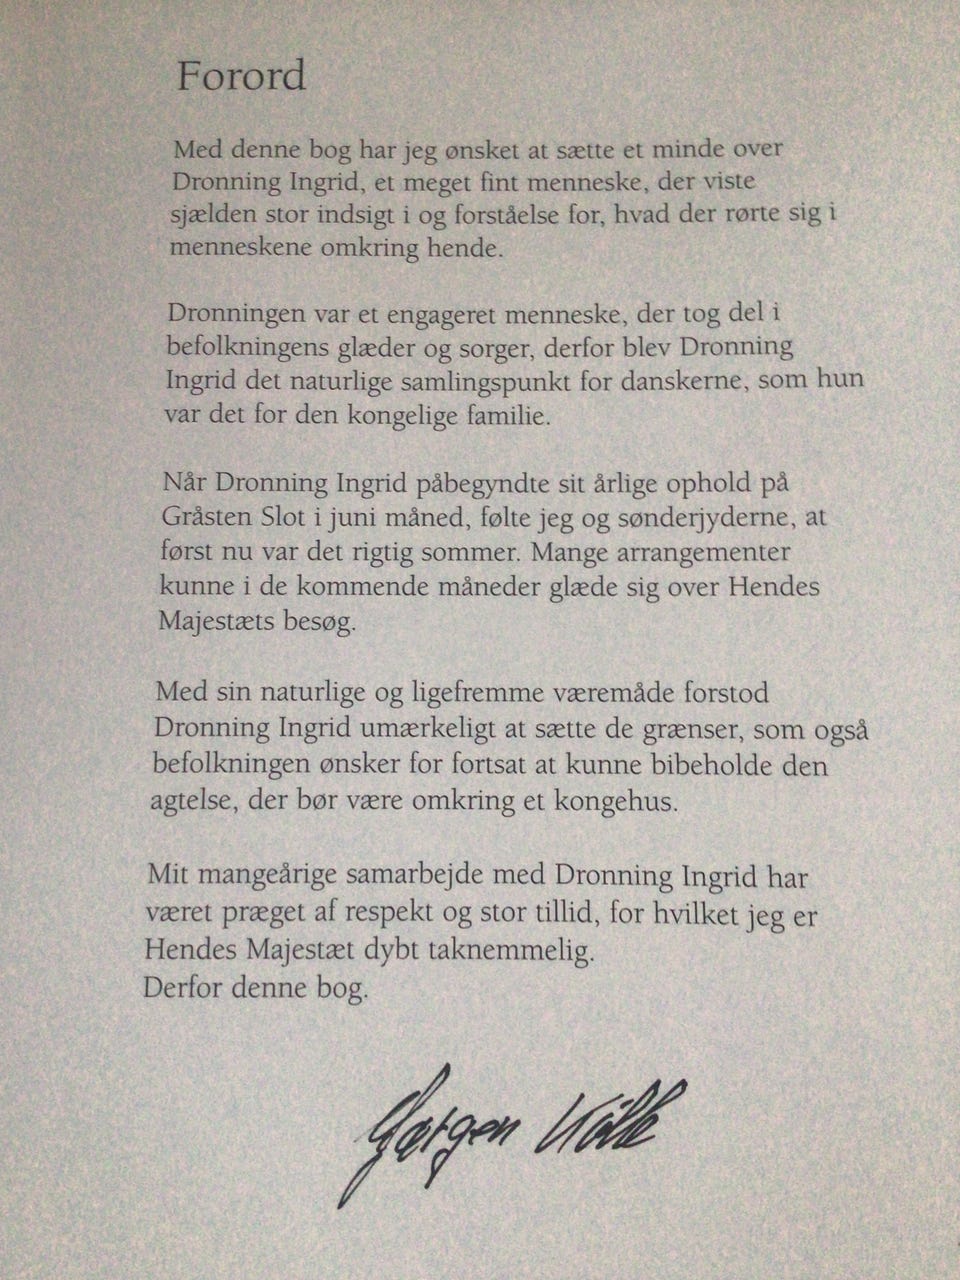 Forord
Med denne bog har jeg ønsket at sætte et minde over
Dronning Ingrid, et meget fint menneske, der viste
sjælden stor indsigt i og forståelse for, hvad der rørte sig i
menneskene omkring hende.
Dronningen var et engageret menneske, der tog del i
befolkningens glæder og sorger, derfor blev Dronning
Ingrid det naturlige samlingspunkt for danskerne, som hun
var det for den kongelige familie.
Når Dronning Ingrid påbegyndte sit årlige ophold på
Gråsten Slot i juni måned, følte jeg og sønderjyderne, at
først nu var det rigtig sommer. Mange arrangementer
kunne i de kommende måneder glæde sig over Hendes
Majestæts besøg.
Med sin naturlige og ligefremme væremåde forstod
Dronning Ingrid umærkeligt at sætte de grænser, som også
befolkningen ønsker for fortsat at kunne bibeholde den
agtelse, der bør være omkring et kongehus.
Mit mangeårige samarbejde med Dronning Ingrid har
været præget af respekt og stor tillid, for hvilket jeg er
Hendes Majestæt dybt taknemmelig.
Derfor denne bog.